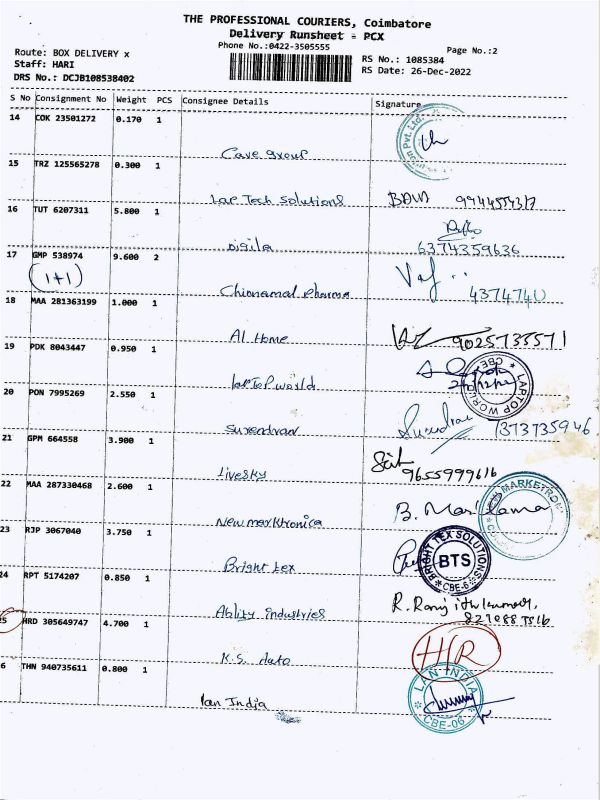 THE PROFESSIONAL COURIERS, Coimbatore
Delivery Runsheet - PCX
Phone No.:0422-3505555
Page No.:2
Route: BOX DELIVERY x
Staff: HARI
DRS No.: DCJB108538402
RS No.: 1085384
RS Date: 26-Dec-2022
S No Consignment No Weight PCS Consignee Details Signature
14 COK 23501272 0.170 1
Cave group
15 TRZ 125565278 0.300 1
Lap Tech Solutions
16 TUT 6207311 5.800 1
Disila 6374359636
17 GMP 538974 9.600 2
(1+1)
Chinnamal Pharma 4374740
18 MAA 281363199 1.000 1
At Home
19 PDK 8043447 0.950 1
LAPTOP WORLD
CBE
Laptop world
20 PON 7995269 2.550 1
Surendran
21 GPM 664558 3.900 1
Livesky 9655999616
22 MAA 287330468 2.600 1
B.
MARKETRON
Newmarktronica
23 RJP 3067040 3.750 1
BRIGHT TEX SOLUTIONS
BTS
CBE-6
Bright tex
24 RPT 5174207 0.850 1
Ability industries
25 HRD 305649747 4.700 1
HR
K.S. Auto
6 THN 940735611 0.800 1
LAN INDIA
CBE-06
Lan India